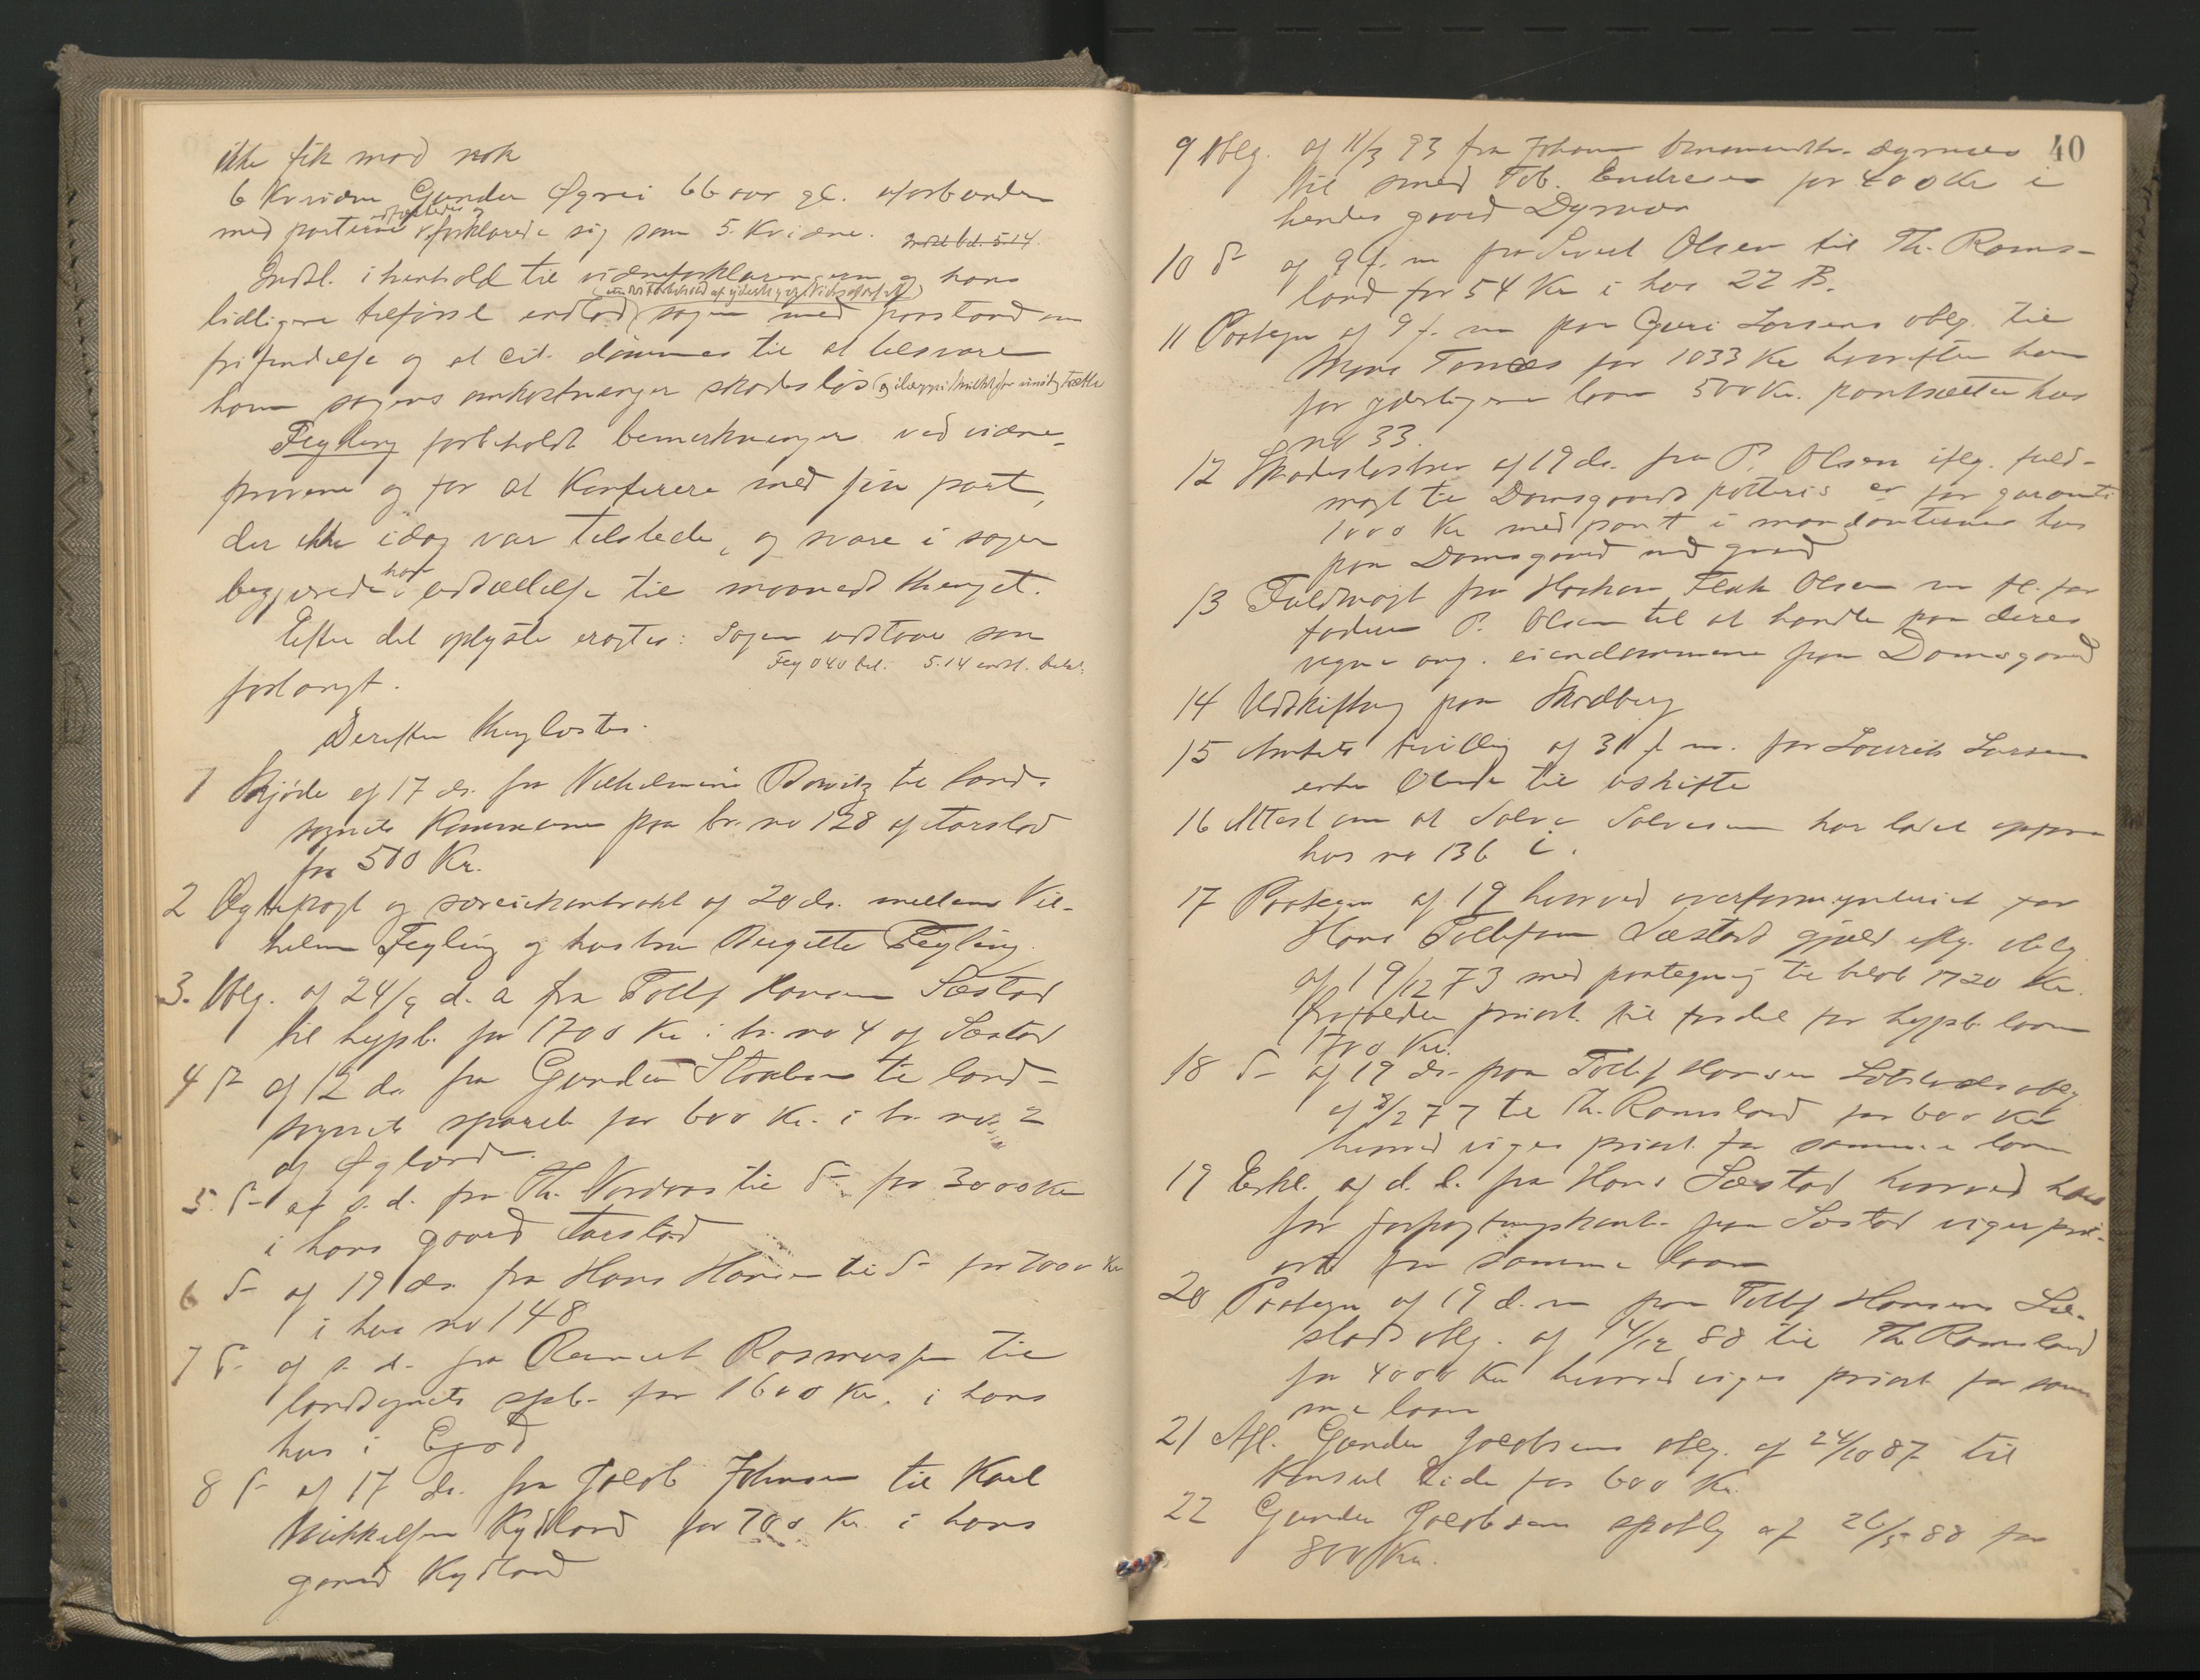 ikke fik mad nok
6 Kvidne Gunder Øgrei 66 aar gl. uforbunden
med parterne edfæstedes og forklarede sig som 5. Kvidne.
Indst. i henhold til vidneforklaringerne og hans
tidligere tilførsel indlod sagen med paastand om
frifindelse og at cit. dømmes til at tilsvare
ham sagens omkostninger skadesløs
Feyling forbeholdt bemerkninger ved vidne-
prøvene og for at konferere med sin part,
der ikke idag var tilstede, og svare i sagen
begjærede han udsættelse til maanedsthinget.
Efter det oplyste eragtes: Sagen udstaar som
Fey 040 bet. 5.14 indst. betal.
forlangt.
Derefter thinglæstes.
1 Skjøde af 17 ds. fra Vilhelmine Bowitz til land-
sognets Kommune paa br. no 128 af Aarstad
for 500 Kr.
2 Ægtepagt og særeiekontrakt af 20 ds. mellem Vil-
helm Feyling og hustru Birgitte Feyling
3. Oblg. af 24/9 d. a fra Tollf Hansen Sæstad
til hypb. for 1700 Kr i br. no 4 af Sæstad
4 do af 12 ds. fra Gunder Stoaben til land-
sognets spareb for 600 Kr. i br. no 2
af Øgland
5. do af s. d. fra Th. Nordaas til do for 3000 Kr
i hans gaard Aarstad
6 do af 19 ds. fra Hans Hansen til do for 7000 Kr
i hus no 148
7 do af s. d. fra Reinert Rasmussen til
landsognets spb. for 1600 Kr. i hans
hus i Ejgod
8 do af 17 ds. fra Jacob Johnsen til Karl
Mikkelsen Kydland for 700 Kr. i hans
gaard Kydland
40
9 Oblg. af 11/3 93 fra Johanne dyrnæs
til smed Tob. Endresen for 400 Kr i
hendes gaard Dyrnæs
10 do af 9 f. m fra Sivert Olsen til Th. Roms-
land for 54 Kr i hus 22 B.
11 Paategn af 9 f. m paa Guri Larsens oblg. til
Tonnes for 1033 Kr hvorefter han
for yderligere laan 500 Kr. pantsætter hus
no 33.
12 Skadesløsbrev af 19 ds. fra P. Olsen iflg. fuld-
magt til Damsgaards potteri for garanti
1000 Kr med pant i mandanternes hus
paa Damsgaard med grund
13 Fuldmagt fra Haakon Olsen m fl. for
faderen P. Olsen til at handle paa deres
vegne ang. eiendommene paa Damsgaard
14 Udskiftning paa Skadberg
15 Amtets bevilling af 31 f. m. for Lauritz Larsens
enke til uskifte
16 Attest om at Salve Salvesen har ladet opføre
hus no 136 C.
17 Paategn af 19 hvorved overformynderiet for
Hans Tollefsen Sæstads gjæld iflg. oblg
af 19/12 73 med paategning til beløb 1720 Kr.
priorit. til fordel for hypb. laan
1700 Kr.
18 do af 19 ds. paa Tollf Hansen Sæstads oblg
af 8/2 77 til Th. Romsland for 600 Kr
hvorved viges priorit. for samme laan
19 Erkl. af d. d. fra Hans Sæstad hvorved hans
for forpagtningskont. paa Sæstad viger pri-
orit for samme laan
20 Paategn af 19 d. m paa Tollf Hansens Sæ-
stads oblg. af 14/12 88 til Th Romsland
for 4000 Kr hvorved viges priorit for sam
me laan
21 Afl. Gunder Jacobsens oblg. af 24/10 87 til
Konsul for 600 Kr.
22 Gunder Jacobsens oblg af 26/5 88 for
800 Kr.